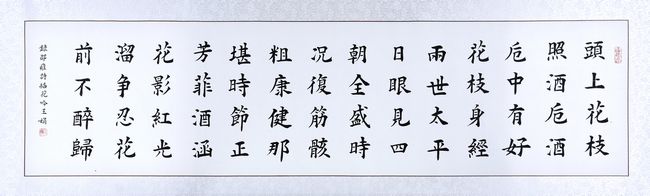 頭上花枝
照酒卮酒
卮中有好
花枝身經
兩世太平
日眼見四
朝全盛時
况復筋骸
粗康健那
堪時節正
芳菲酒涵
花影紅光
溜争忍花
前不醉歸
錄邵雍詩插花吟王娟